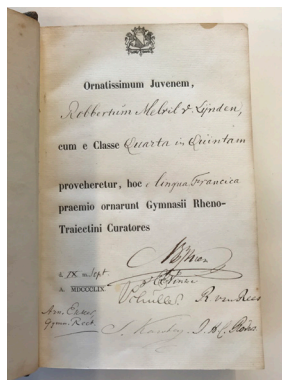 Ornatissimum Juvenem,
Robbertum Melvil v. Lijnden,
cum e Classe Quarta in Quintam
proveheretur, hoc e lingua Francica
praemio ornarunt Gymnasii Rheno-
Traiectini Curatores
d. IX m. Sept
A. MDCCCLIX.
R. van Rees
Gymn. Rect.